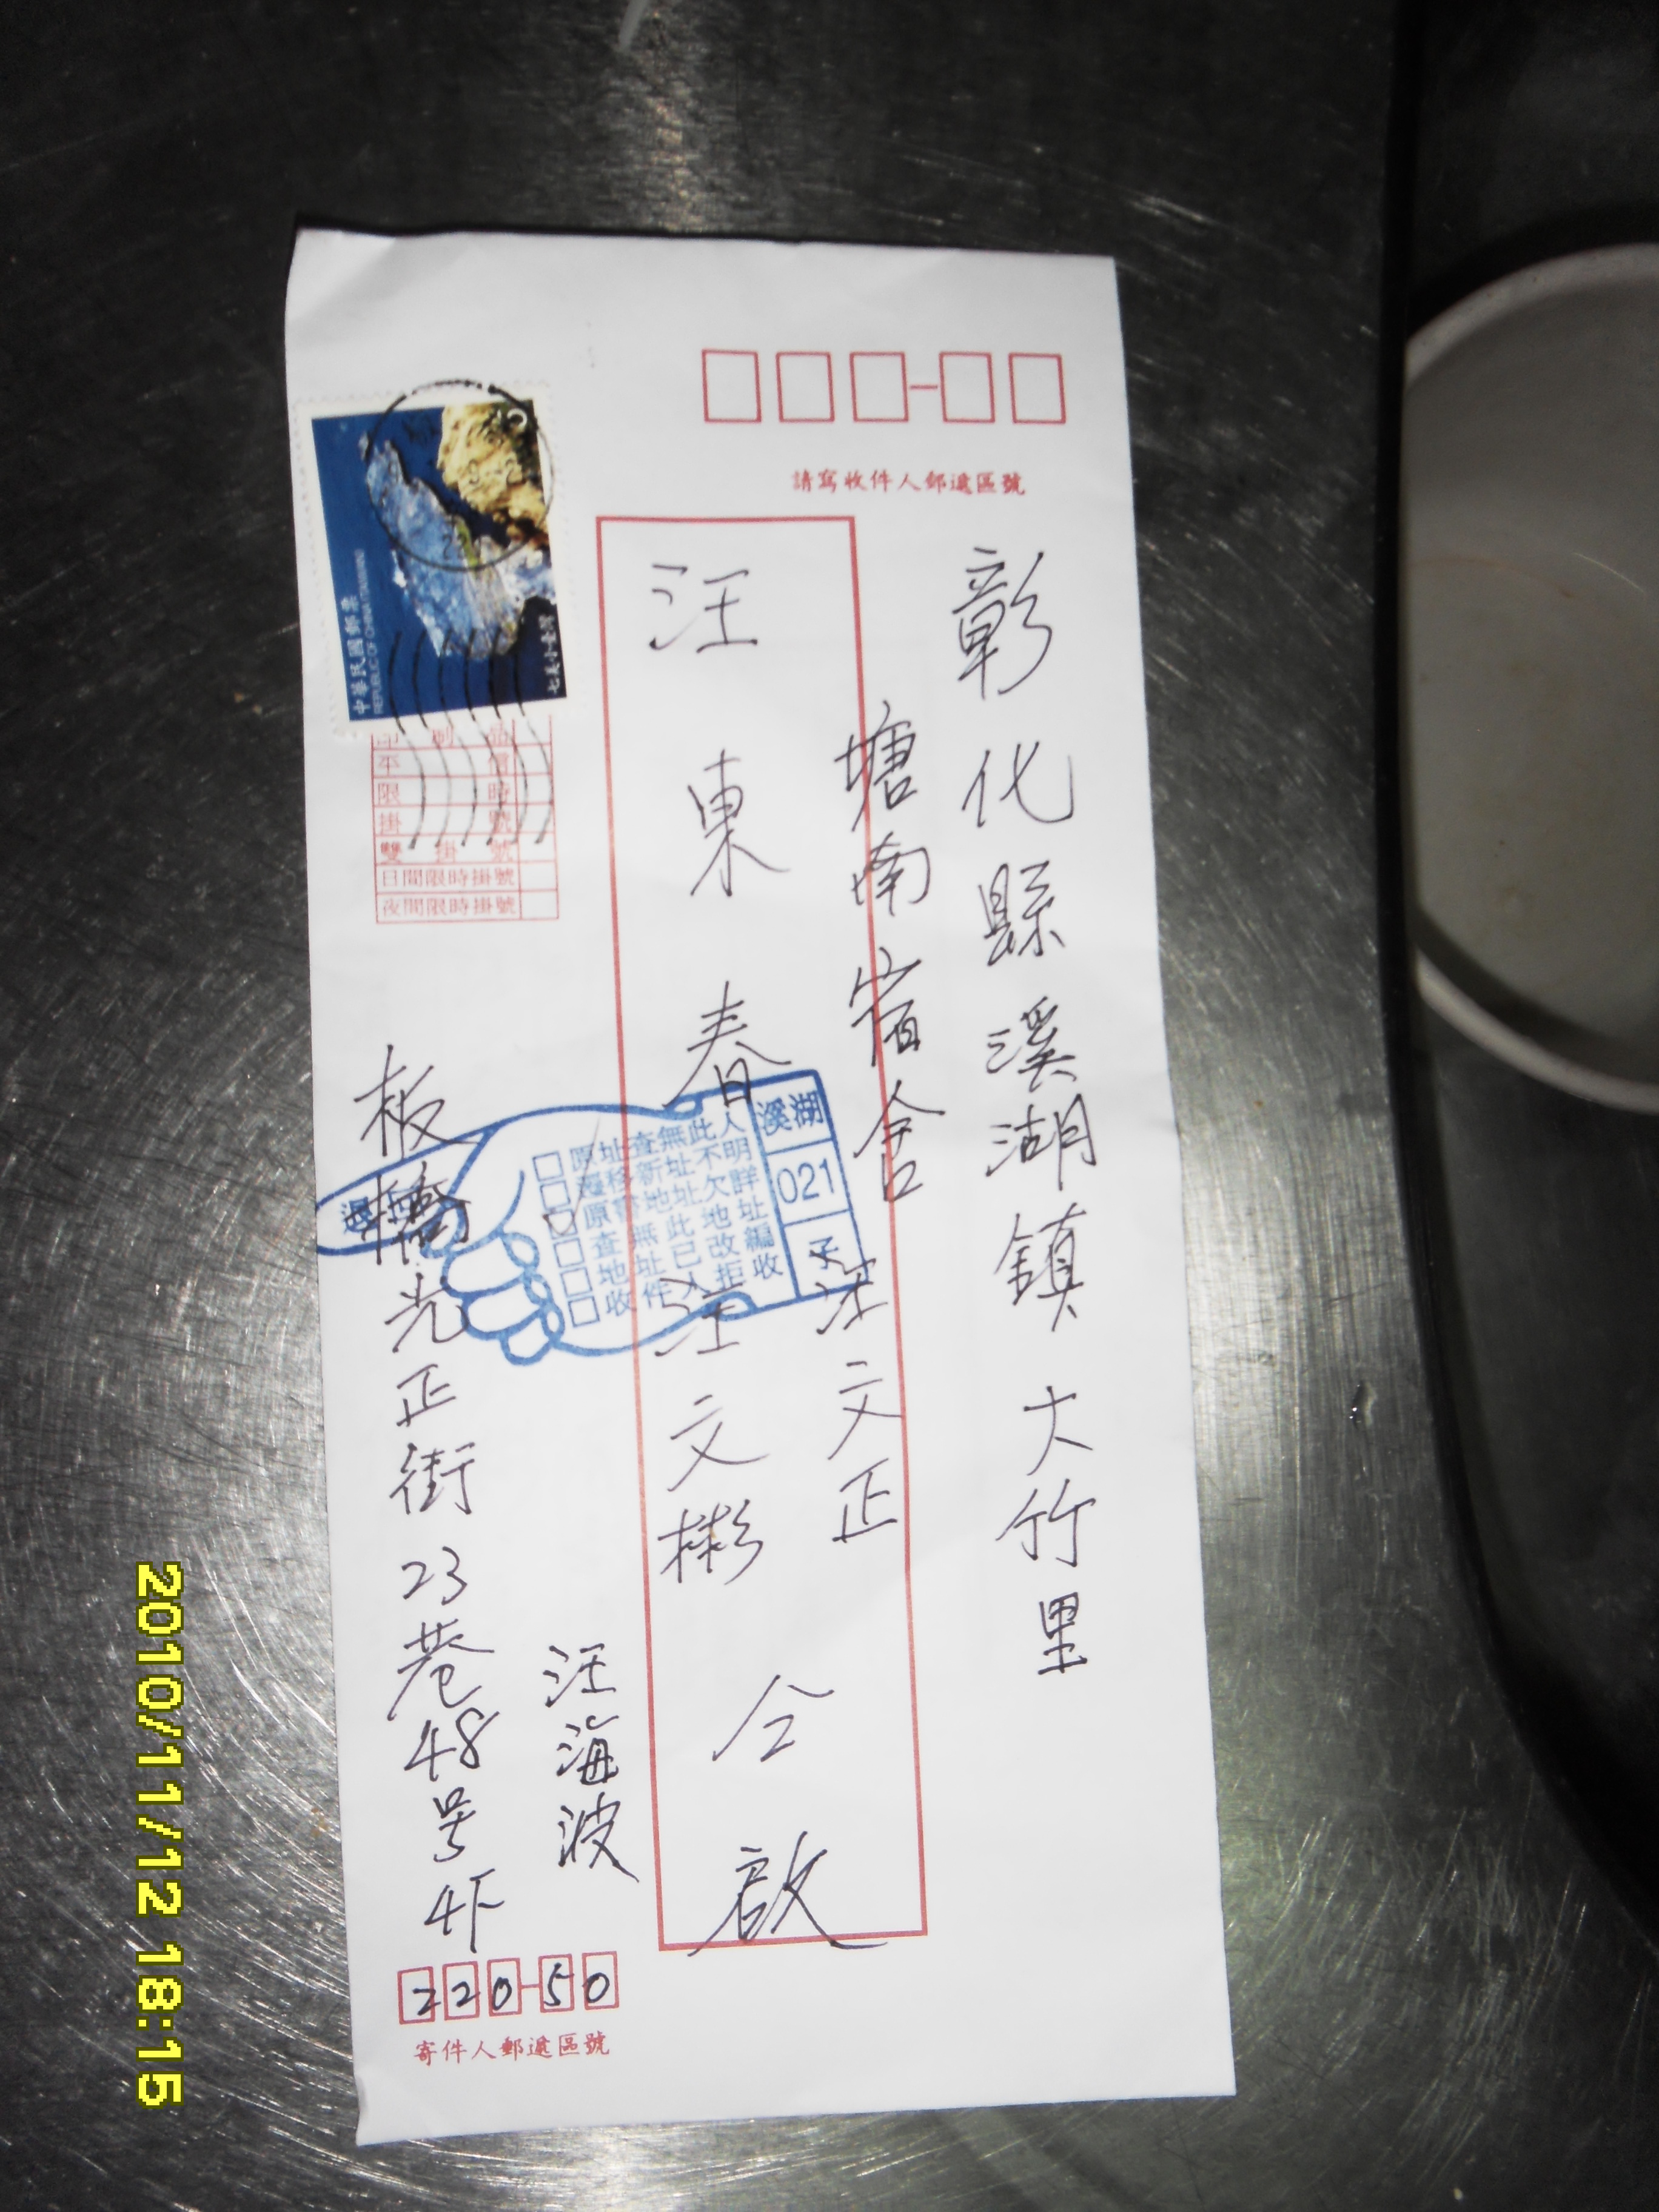 請寫收件人郵遞區號
彰化縣溪湖鎮大竹里
塘南宿舍
文正
汪東春
汪文彬
仝啟
中華民國郵票
REPUBLIC OF CHINA (TAIWAN)
七美小臺灣
印刷品
平信
限時
掛號
雙掛號
日間限時掛號
夜間限時掛號
溪湖
021
原址查無此人
遷移新址不明
原書地址欠詳
查無此地址
地址已改編
收件人拒收
退
汪海波
板橋光正街23巷48号4F
220-50
寄件人郵遞區號
2010/11/12 18:15